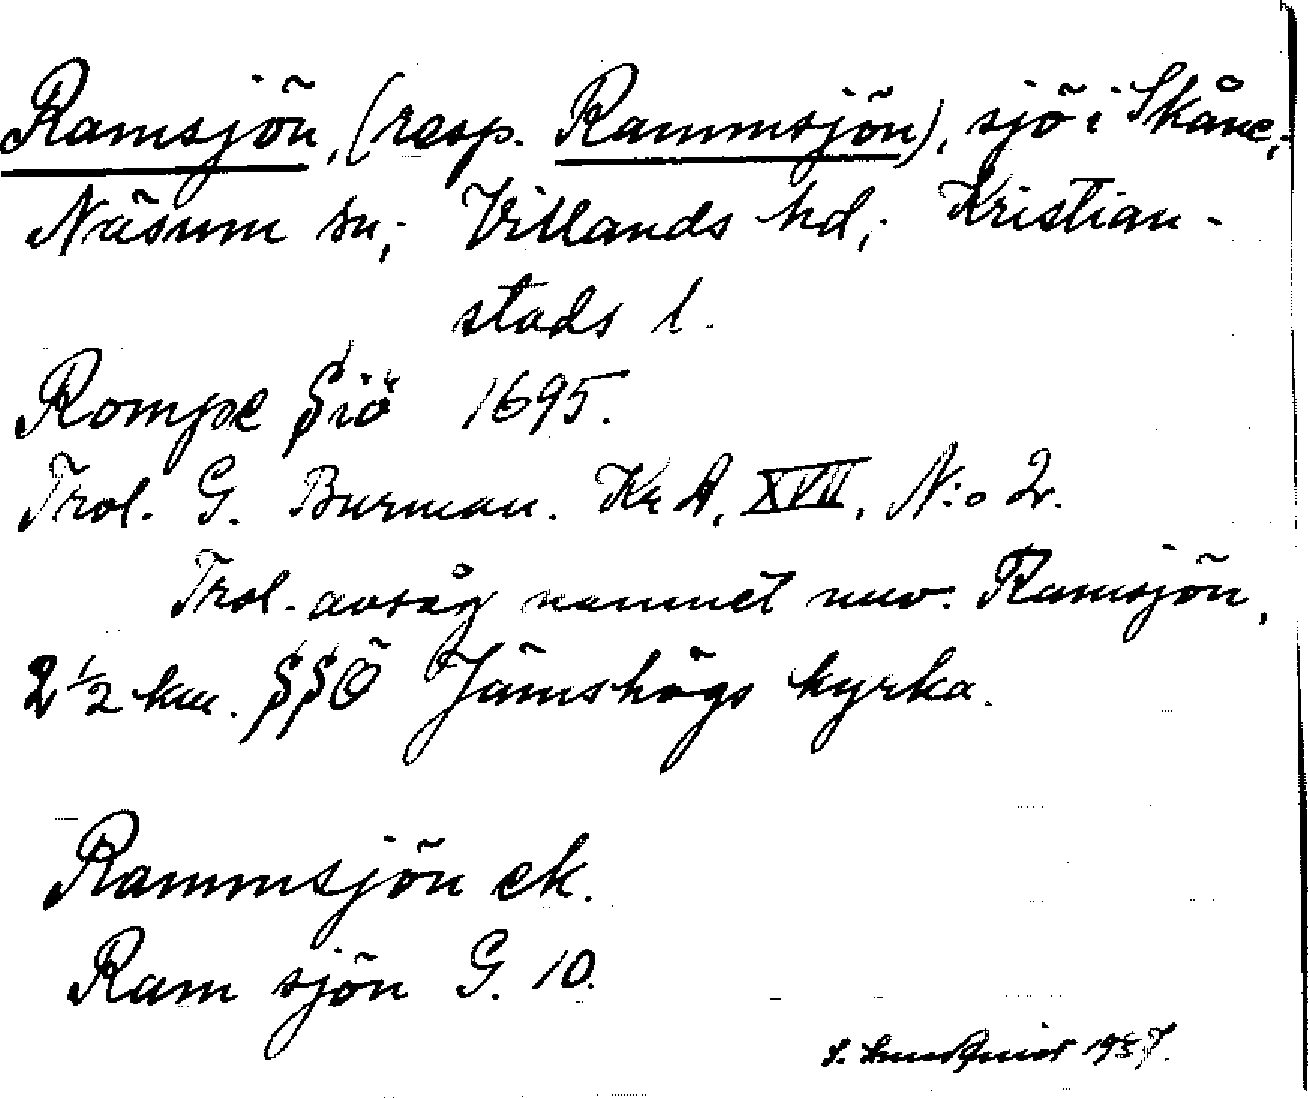 Ramsjön, (resp. Rammsjön), sjö i Skåne;
Näsum sn; Villands hd; Kristian-
stads l.
Rompe Siö 1695.
Trol. G. Burman. Kr A, XVII, N:o 2.
Trol. avsåg namnet nuv. Ramsjön,
2 1/2 km. SSÖ Jämshögs kyrka.
Rammsjön ek.
Ram sjön G. 10.
1957.